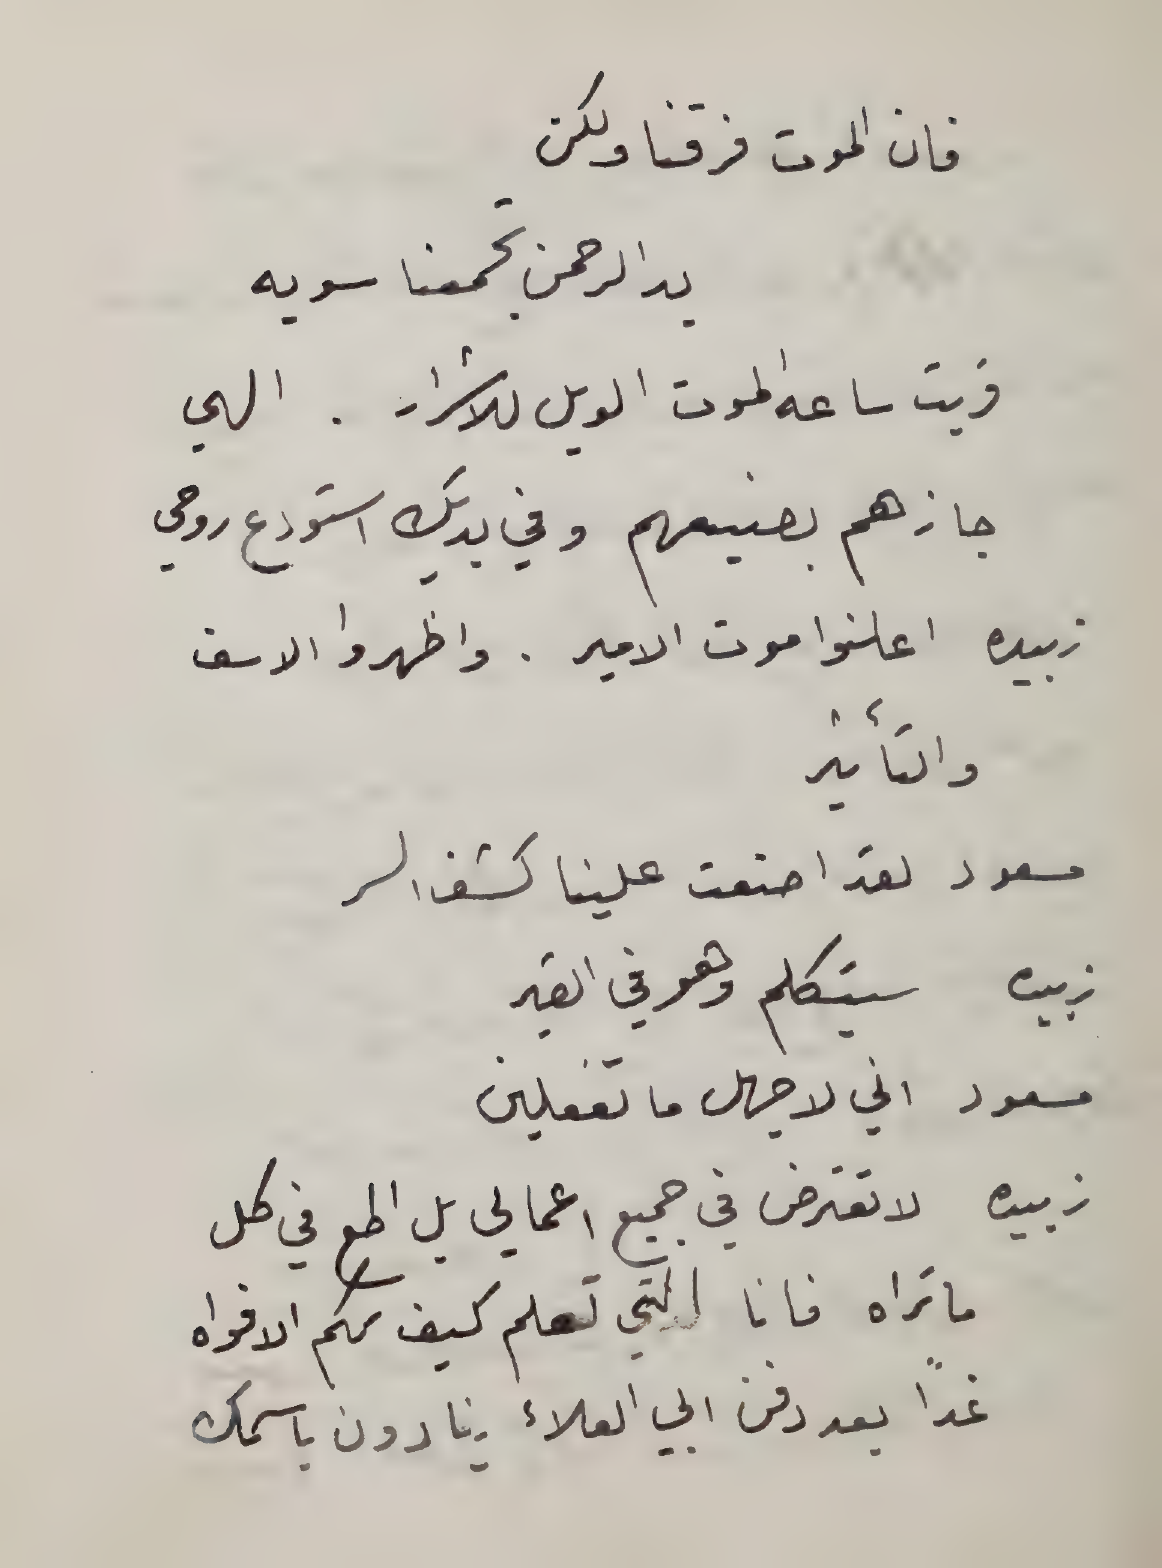 فان الموت فرقنا ولكن
يد الرحمن تجمعنا سويه
قربت ساعه الموت الويل للاشرار . الهي
جازهم بصنيعهم وفي يديك استودع روحي
زبيده اعلنوا موت الامير . واظهروا الاسف
والتأثير
مسعود لقد امتعت علينا كشف السر
زبيده سيتكلم وهو في القبر
مسعود اني لاجهل ما تفعلين
زبيده لا تعترض في جميع اعمالي بل اطع في كل
ما تراه فانا التي تعلم كيف تكم الافواه
غداً بعد دفن ابي العلاء ينادون باسمك